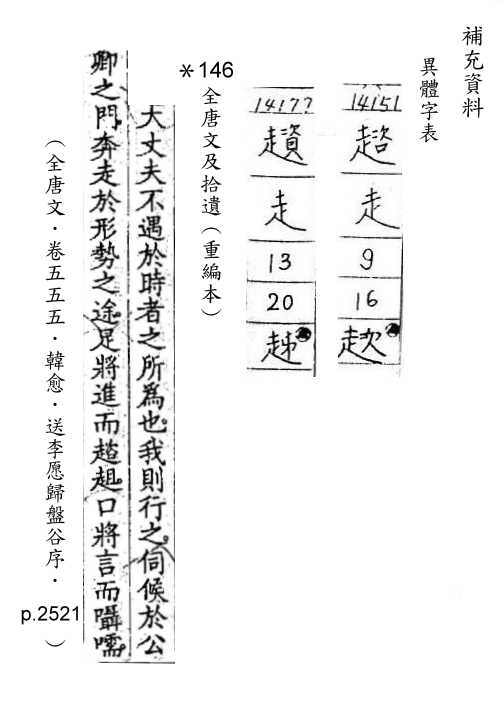 補充資料
異體字表
14151
趦
走
9
16
趑
14177
走
13
20
*146
全唐文及拾遺（重編本）
大丈夫不遇於時者之所爲也。我則行之。伺候於公
卿之門。奔走於形勢之途。足將進而趦趄。口將言而囁嚅。
（全唐文．卷五五五．韓愈．送李愿歸盤谷序．p.2521）